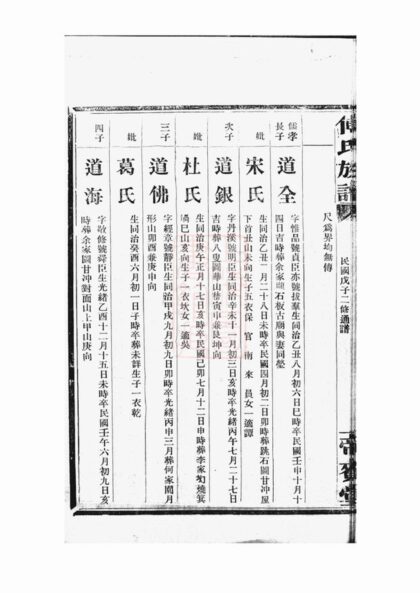 氏族譜
民國戊子二修通譜
尺爲界均無傳
儒孝長子
道全
字惟品號貞臣亦號拔羣生同治乙丑八月初六日巳時卒民國壬申十月十四日吉時葬余家石板古廟與妻同塋
妣
宋氏
生同治乙丑一月二十八日未時卒民國四月初二日卯時葬跳石圖甘沖屋下首丑山未向生子五衣保官南來員女一適譚
次子
道銀
字丹溪號明臣生同治辛未十一月初三日亥時卒光緒丙午七月二十七日吉時葬八叟圖華山禁寅申兼艮坤向
妣
杜氏
生同治庚午正月十七日亥時卒民國己卯七月十二日申時葬李家燒箕巳山亥向生子一衣坎女一適吳
三子
道佛
字經章號靜臣生同治甲戌九月初九日卯時卒光緒丙申三月葬何家園月形山卯酉兼庚申向
妣
葛氏
生同治癸酉六月初一日子時卒葬未詳生子一衣乾
四子
道海
字敏修號舜臣生光緒乙酉十二月十五日未時卒民國壬午六月初九日亥時葬余家圖甘沖對面山上甲山庚向